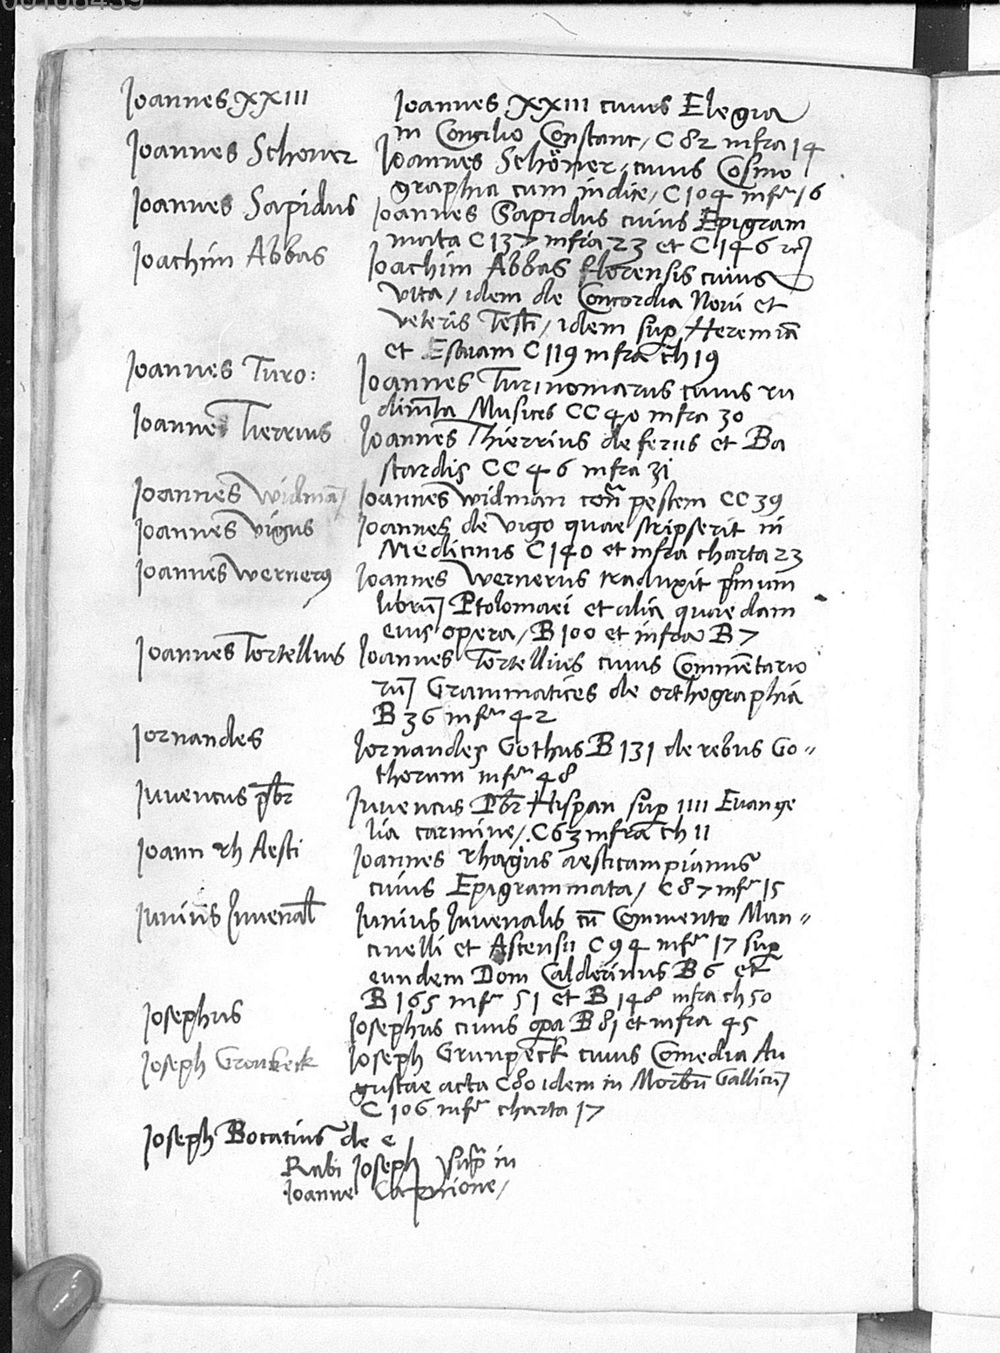 00106439
Joannes XXIII
Joannes XXIII cuius Elegia
in Concilio Constanc, C 82 infra 14
Joannes Schoner
Joannes Schöner, cuius Cosmo
graphia cum indice, C 104 infr 16
Joannes Sapidus
Joannes Sapidus cuius Epigram
mata C 137 infra 23 et C 146
Joachim Abbas
Joachim Abbas florensis cuius
vita, idem de Concordia Novi et
veteris Testi, idem sup Heremiā
et Esaiam C 119 infra ch 19
Joannes Turo:
Joannes Turinomarus cuius ru
dimta Musices CC 40 infra 30
Joannes Tierrius
Joannes Thierrius de feriis et Ba
stardis CC 46 infra 31
Joannes Widman
Joannes widman contra pestem CC 39
Joannes vigus
Joannes de vigo quae scripserit in
Medicinis C 140 et infra charta 23
Joannes wernerus
Joannes wernerus traduxit primum
librum Ptolomaei et alia quaedam
eius opera, B 100 et infra B 7
Joannes Tortellius
Joannes Tortellius cuius Commentario
rum Grammatices de orthographia
B 36 infr 42
Jornandes
Jornandes Gothus B 131 de rebus Go-
thorum infr 48
Juvencus pbr
Juvencus Pbr Hispan sup IIII Euange
lia carmine, C 63 infra ch 11
Joann rh Aesti
Joannes rhagius aesticampianus
cuius Epigrammata, C 87 infr 15
Junius Juvenal
Junius Juvenalis cū Commento Man-
cinelli et Ascensii C 94 infr 17 sup
eundem Dom Calderinus B 6 et
B 165 infr 51 et B 148 infra ch 50
Josephus
Josephus cuius opa B 81 et infra 45
Joseph Gronbeck
Joseph Grunpeck cuius Comedia Au
gustae acta C 80 idem in Morbū Gallicū
C 106 infr charta 17
Joseph Bocatius de c
Rabi Joseph supr in
Joanne Capnione,